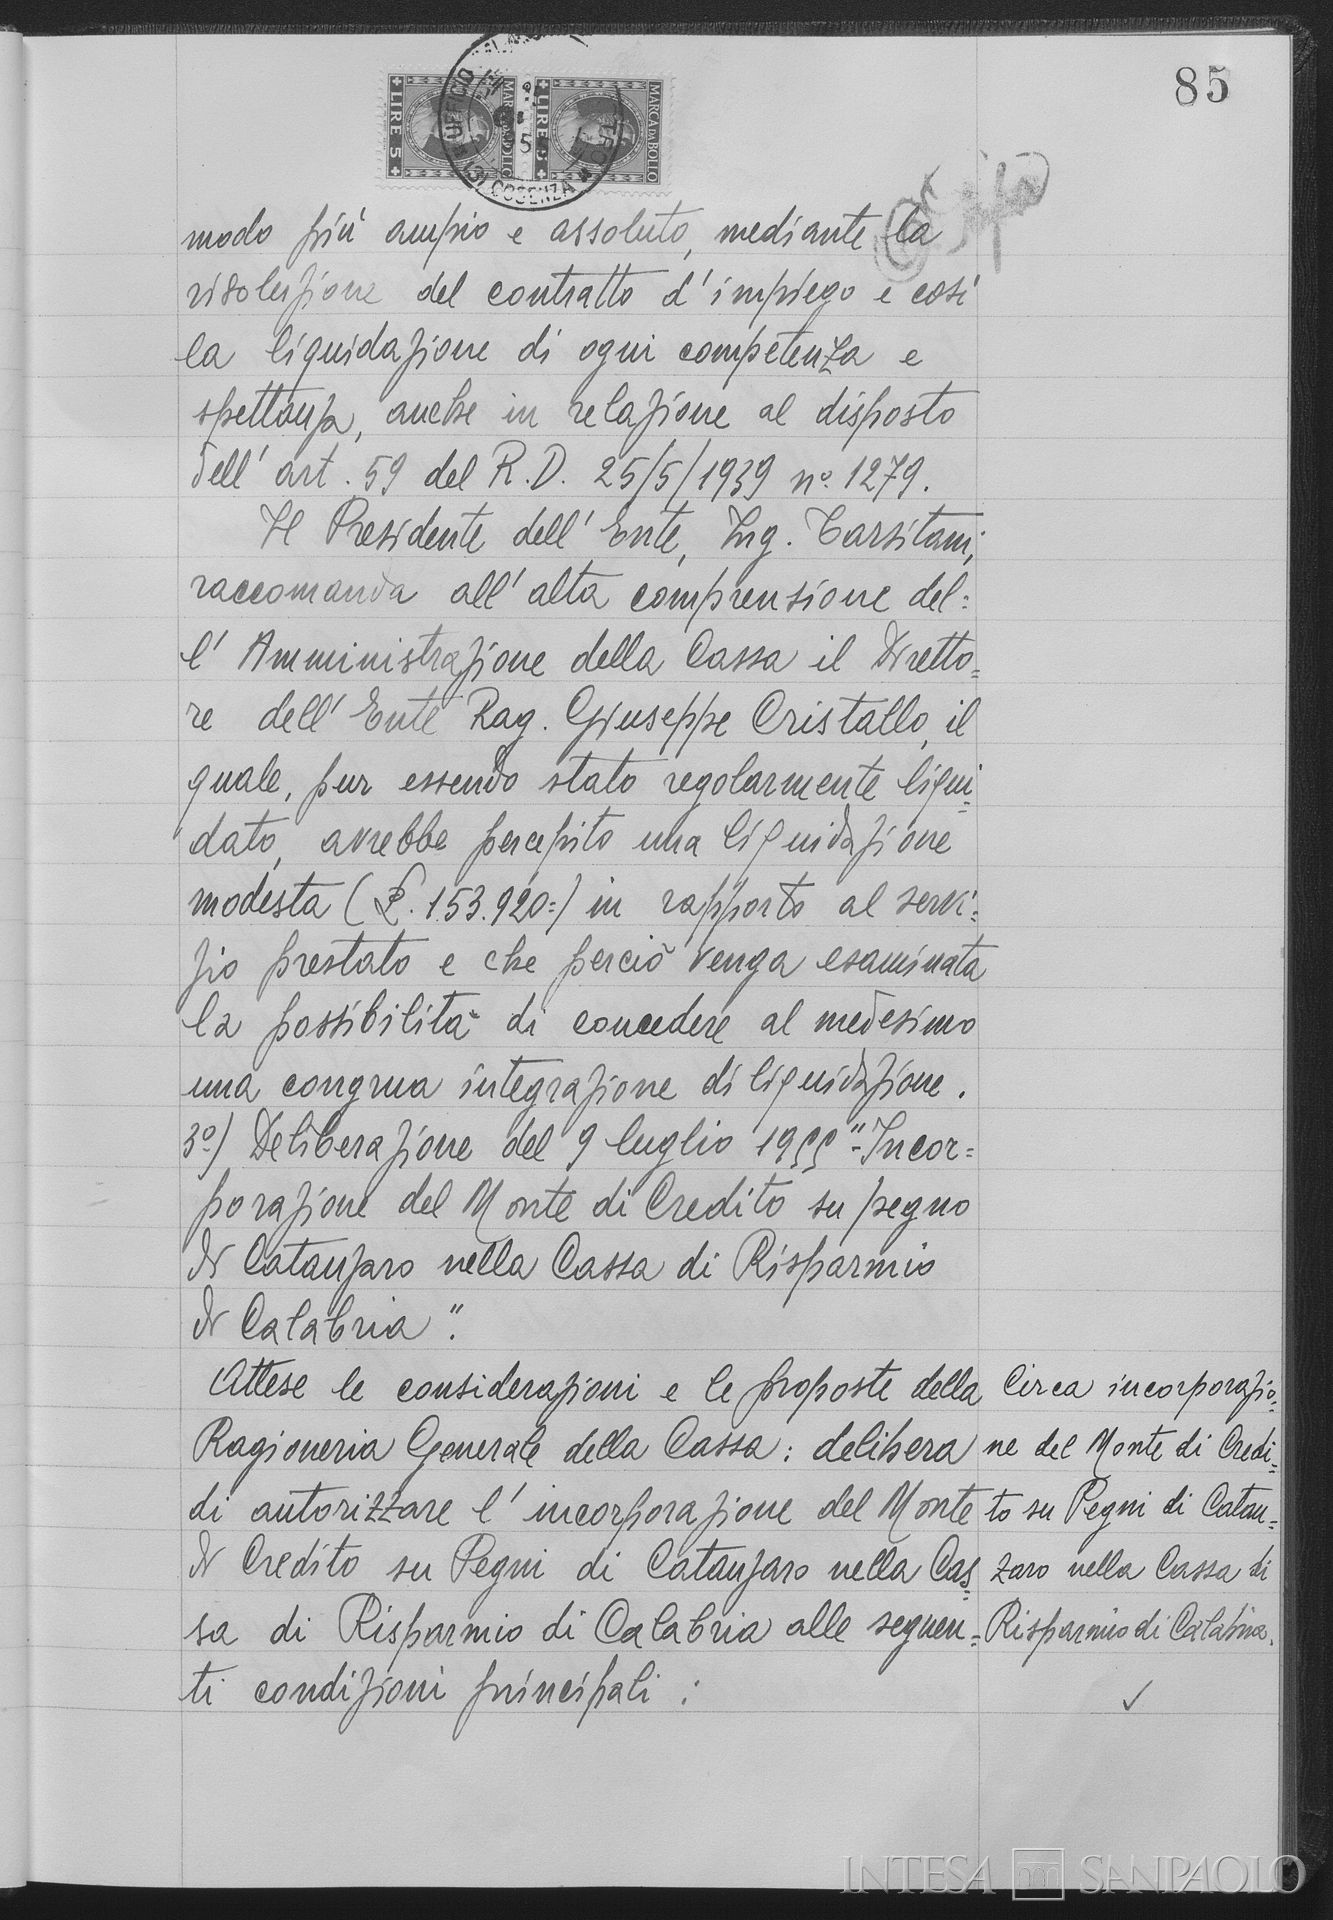 85
MARCA DA BOLLO
LIRE 5
MARCA DA BOLLO
LIRE 5
UFFICIO
DI COSENZA
modo più ampio e assoluto, mediante la
risoluzione del contratto d'impiego e così
la liquidazione di ogni competenza e
spettanza, anche in relazione al disposto
dell'art. 59 del R.D. 25/5/1939 nº. 1279.
Il Presidente dell'Ente, Ing. Tarsitani,
raccomanda all'alta comprensione del=
l'Amministrazione della Cassa il Diretto=
re dell'Ente Rag. Giuseppe Cristallo, il
quale, pur essendo stato regolarmente liqui=
dato, avrebbe percepito una liquidazione
modesta (£. 153.920=) in rapporto al servi=
zio prestato e che perciò venga esaminata
la possibilità di concedere al medesimo
una congrua integrazione di liquidazione.
3º) Deliberazione del 9 luglio 1955 "Incor=
porazione del Monte di Credito su pegno
di Catanzaro nella Cassa di Risparmio
di Calabria".
Attese le considerazioni e le proposte della
Ragioneria Generale della Cassa: delibera
di autorizzare l'incorporazione del Monte
di Credito su Pegni di Catanzaro nella Cas=
sa di Risparmio di Calabria alle seguen=
ti condizioni principali:
Circa incorporazio=
ne del Monte di Credi=
to su Pegni di Catan=
zaro nella Cassa di
Risparmio di Calabria.
INTESA SANPAOLO